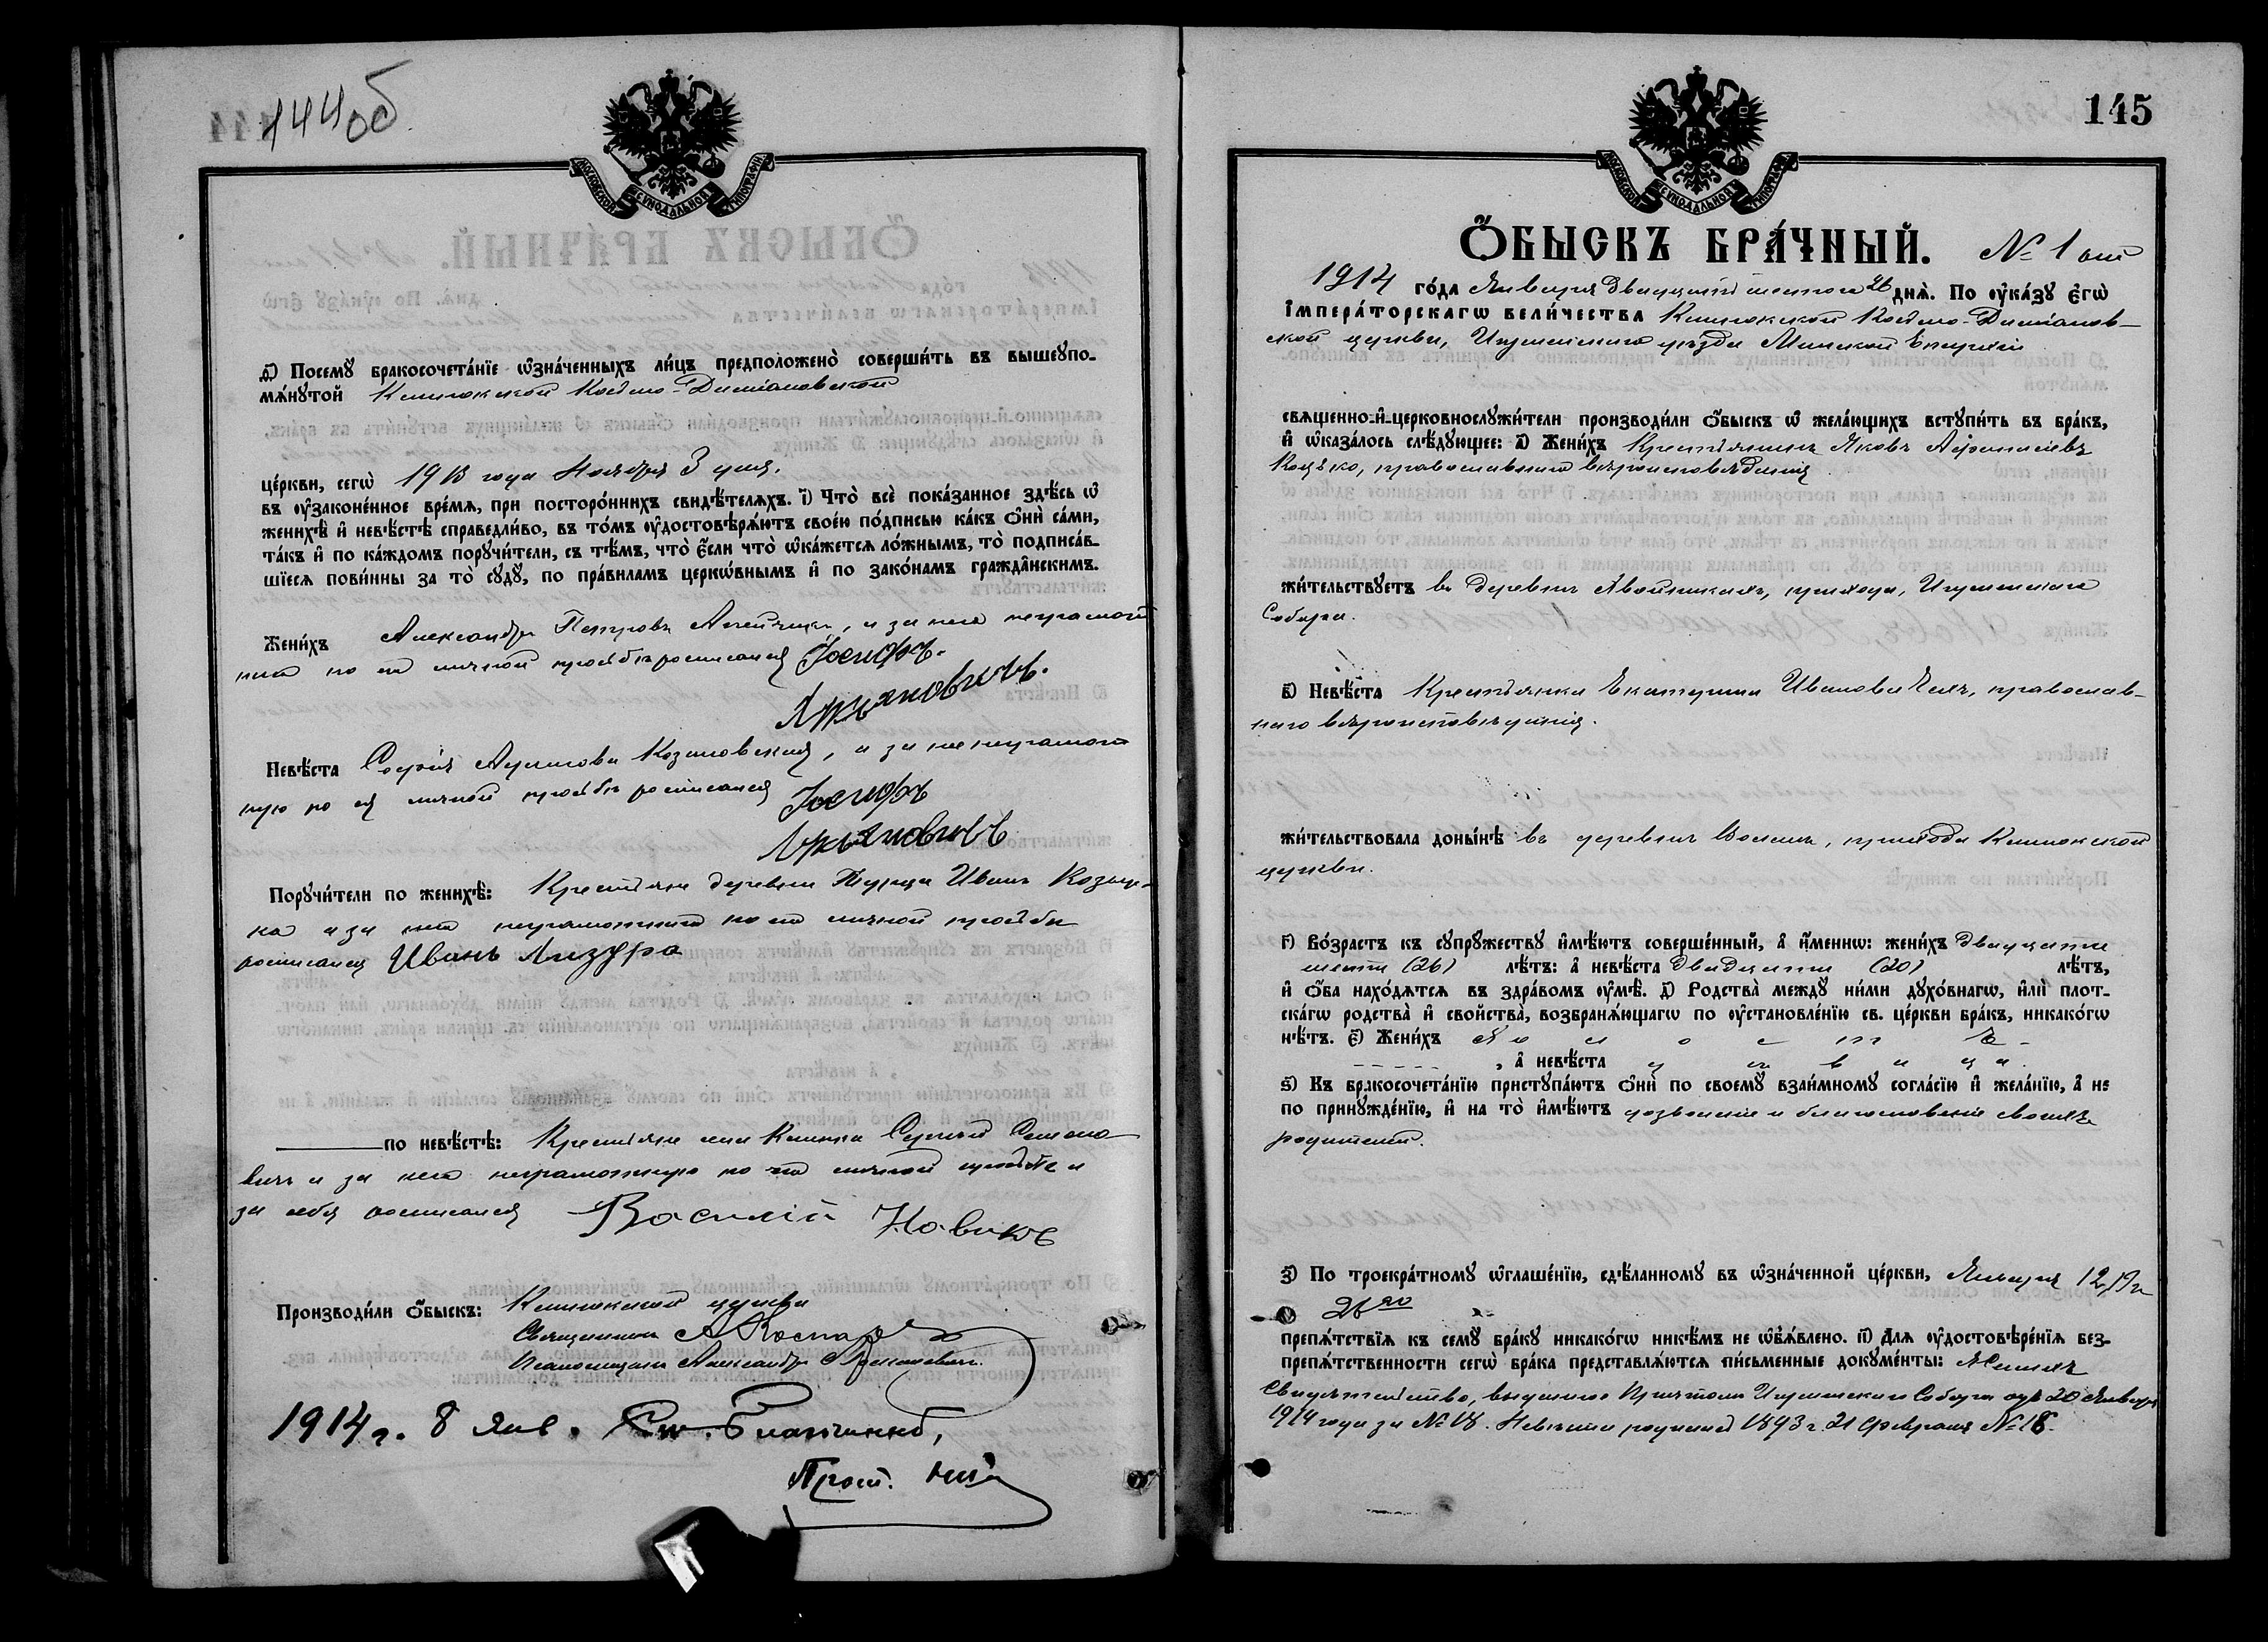 144об
МОСКОВСКОЙ СѴНОДАЛЬНОЙ ТИПОГРАФІИ
д҃) Посемꙋ бракосочета́нїе ѡзна́ченныхъ ли́цъ предположено̀ соверши́ть въ вышеꙋпо-
мѧ́нꙋтой Клинокской Космо-Даміановской
це́ркви, сегѡ̀ 1913 года Ноября 3 дня.
въ ᲂу҆законе́нное вре́мѧ, при посторо́ннихъ свидѣ́телѧхъ. і҃) Что̀ всѐ пока́занное здѣ́сь ѡ
женихѣ̀ и҆ невѣ́стѣ справедли́во, въ то́мъ ᲂу҆достовѣрѧ́ютъ свое́ю по́дписью ка́къ ѻ҆нѝ са́ми,
та́къ и҆ по ка́ждомъ порꙋчи́тели, съ тѣ́мъ, что̀ є҆́сли что̀ ѡка́жетсѧ ло́жнымъ, то̀ подписа́в-
шїесѧ пови́нны за то̀ сꙋдꙋ̀, по пра́виламъ церкѡ́внымъ и҆ по зако́намъ гражда̂нскимъ.
Жени́хъ Александръ Петровъ, и за него неграмот
наго по его личной просьбѣ росписался Іосифъ
Лукьяновичъ.
Невѣ́ста Софія Козловская, и за нее неграмот
ную по ея личной просьбѣ росписался Іосифъ
Лукьяновичъ
Порꙋчи́тели по женихѣ̀: Крестьяне деревни Иванъ
ка и за него неграмотнаго по его личной просьбы
росписался Иванъ Лизура
по невѣ́стѣ: Крестьяне села Клинка Сергей Семено
вичъ и за него неграмотную по его личной просьбѣ и
за себя росписался Василій Новикъ
Производи́ли ѻ҆́быскъ: Клинокской церкви
Священникъ А.
Псаломщикъ Александръ
1914 г. 8 Янв. Св.
Прот.
145
МОСКОВСКОЙ СѴНОДАЛЬНОЙ ТИПОГРАФІИ
Ѻ҆́БЫСКЪ БРА́ЧНЫЙ. № 1
1914 го́да Января двадцать шестого 26 днѧ̀. По ᲂу҆ка́зꙋ є҆гѡ̀
і҆мпера́торскагѡ вели́чества Клинокской Космо-Даміанов-
ской церкви, Игуменскаго уѣзда Минской Епархіи
свѧщенно-и҆-церковнослꙋжи́тели производи́ли ѻ҆́быскъ ѡ жела́ющихъ вступи́ть въ бра́къ,
и҆ ѡказа́лось слѣ́дꙋющее: а҃) Жени́хъ Крестьянинъ Яковъ Афанасіевъ
Коцько, православнаго вѣроисповѣданія
жи́тельствꙋетъ въ деревни, прихода, Игуменскаго
Собора.
в҃) Невѣ́ста Крестьянка Екатерина Иванова, православ-
наго вѣроисповѣданія.
жи́тельствовала доны́нѣ въ деревни, прихода Клинокской
церкви.
г҃) Во́зрастъ къ сꙋпрꙋ́жествꙋ и҆мѣ́ютъ соверше́нный, а҆ и҆́менно: жени́хъ двадцати
шести (26) лѣ́тъ: а҆ невѣ́ста двадцати (20) лѣ́тъ,
и҆ ѻ҆́ба нахо́дѧтсѧ въ здра́вомъ ᲂу҆мѣ̀. д҃) Родства̀ междꙋ ни́ми дꙋхо́внагѡ, и҆лѝ плот-
ска́гѡ родства̀ и҆ сво́йства̀, возбранѧ́ющагѡ по ᲂу҆становле́нїю св. це́ркви бра́къ, никако́гѡ
нѣ́тъ. є҃) Жени́хъ х о л о с т ъ -
, а҆ невѣ́ста д ѣ в и ц а .
ѕ҃) Къ бракосочета́нїю пристꙋпа́ютъ ѻ҆нѝ по своемꙋ̀ взаи́мномꙋ согла́сїю и҆ жела́нїю, а҆ не
по принꙋжде́нїю, и҆ на то̀ и҆мѣ́ютъ дозволеніе и благословеніе своихъ
родителей.
з҃) По троекра́тномꙋ ѡглаше́нїю, сдѣ́ланномꙋ въ ѡзна́ченной це́ркви, Января 12, 19 и
26го
препѧ́тствїѧ къ семꙋ̀ бра́кꙋ никако́гѡ никѣ́мъ не ѡб̾ѧ́влено. и҃) Длѧ ᲂу҆достовѣре́нїѧ без-
препѧ́тственности сегѡ̀ бра́ка представлѧ́ютсѧ пи́сьменные докꙋме́нты: Жениха
Свидѣтельство, выданное Причтомъ Игуменскаго Собора отъ 20 Января
1914 года за № 18. Невѣста родилась 1893 г. 21 Февраля № 18.